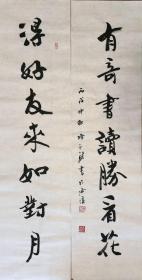 有奇書讀勝看花
得好友來如對月